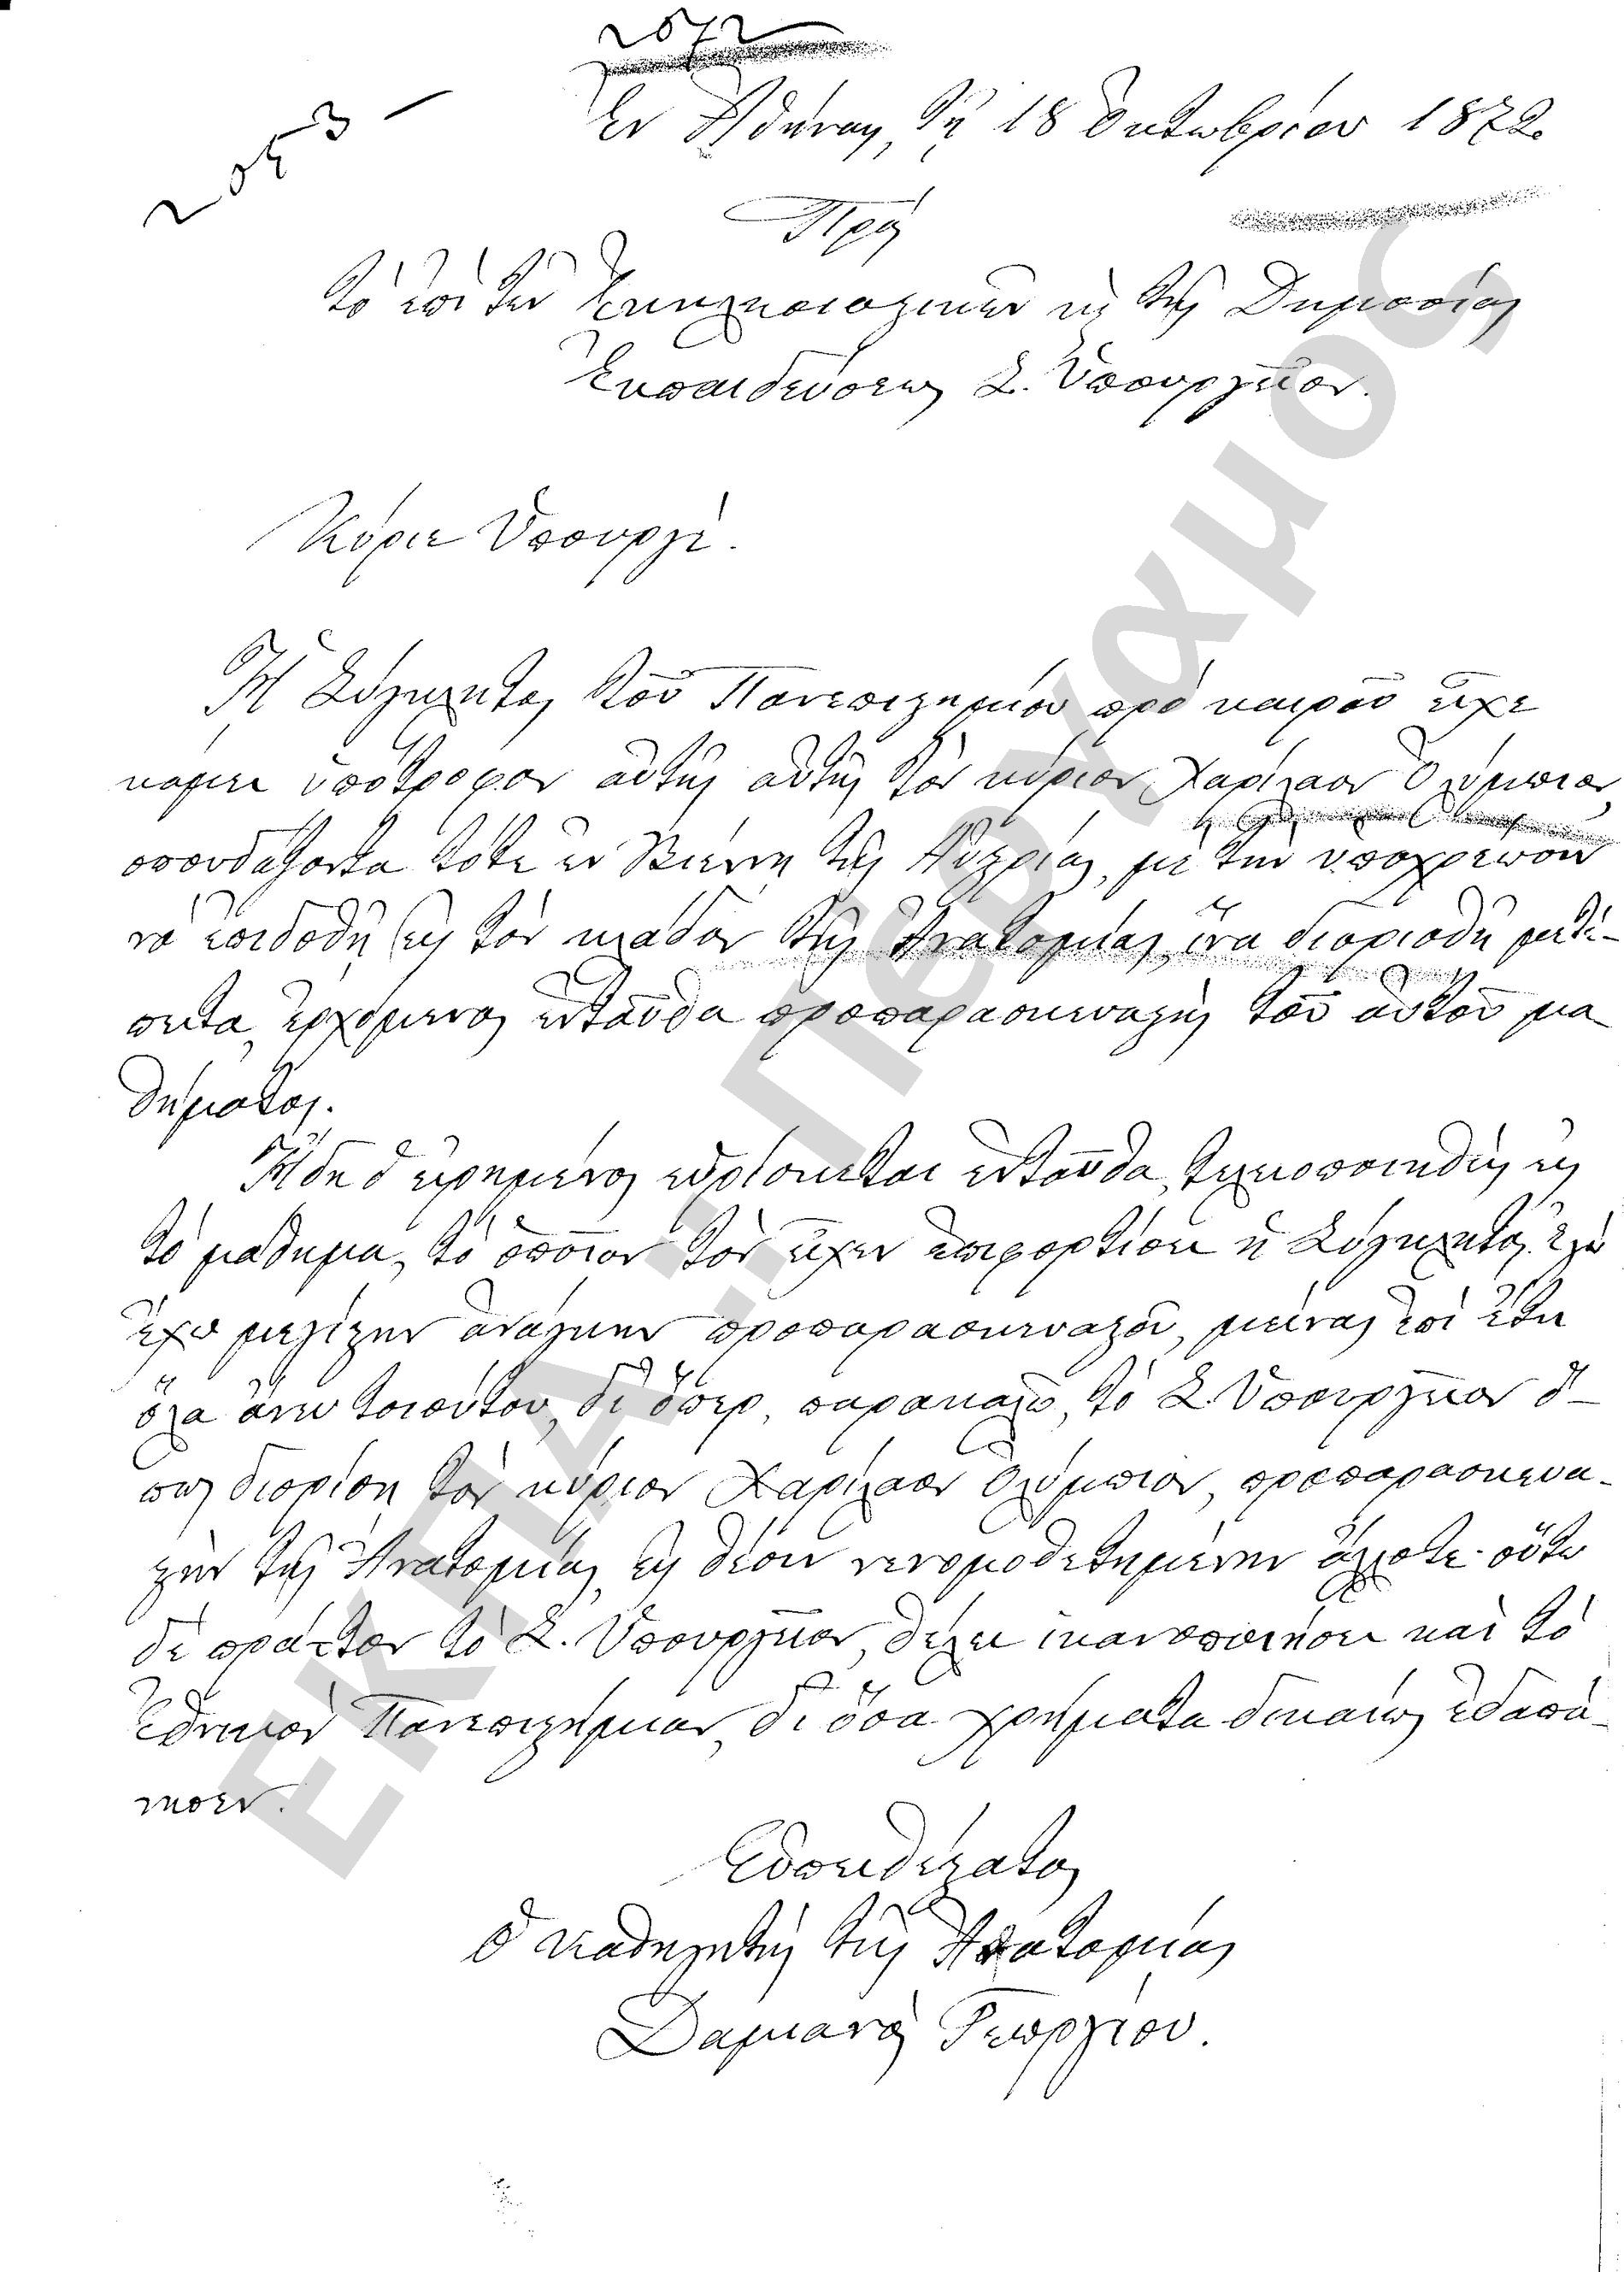 2572
2053 —
Ἐν Ἀθήναις, τῇ 18 Ὀκτωβρίου 1872.
Πρὸς
τὸ ἐπὶ τῶν Ἐκκλησιαστικῶν κ τῆς Δημοσίας
Ἐκπαιδεύσεως Σ. Ὑπουργεῖον.
Κύριε Ὑπουργέ.
Ἡ Σύγκλητος τοῦ Πανεπιστημίου πρὸ καιροῦ εἶχε
κάμει ὑπότροφον αὐτῆς αὐτῆς τὸν κύριον Χαρίλαον Ὀλύμπιον,
σπουδάζοντα τότε ἐν Βιέννῃ τῆς Αὐστρίας, μὲ τὴν ὑποχρέωσιν
νὰ ἐπιδοθῇ εἰς τὸν κλάδον τῆς Ἀνατομίας, ἵνα διορισθῇ μετέ-
πειτα, ἐρχόμενος ἐνταῦθα προπαρασκευαστὴς τοῦ αὐτοῦ μα
θήματος.
Ἤδη ὁ εἰρημένος εὑρίσκεται ἐνταῦθα, τελειοποιηθεὶς εἰς
τὸ μάθημα, τὸ ὁποῖον τὸν εἶχεν ἐπιφορτίσει ἡ Σύγκλητος. Ἐγὼ
ἔχω μεγίστην ἀνάγκην προπαρασκευαστοῦ, μείνας ἐπὶ ἔτη
ὅλα ἄνευ τοιούτου, δι' ὅπερ, παρακαλῶ, τὸ Σ. Ὑπουργεῖον ὅ-
πως διορίσῃ τὸν κύριον Χαρίλαον Ὀλύμπιον, προπαρασκευα-
στὴν τῆς Ἀνατομίας, εἰς θέσιν νενομοθετημένην ἄλλοτε· οὕτω
δὲ πράττον τὸ Σ. Ὑπουργεῖον, θέλει ἱκανοποιήσει καὶ τὸ
Ἐθνικὸν Πανεπιστήμιον, δι' ὅσα χρήματα δικαίως ἐδαπά-
νησεν.
Εὐπειθέστατος
ὁ καθηγητὴς τῆς Ἀνατομίας
Δαμιανὸς Γεωργίου.
ΕΚΠΑ - Πέργαμος